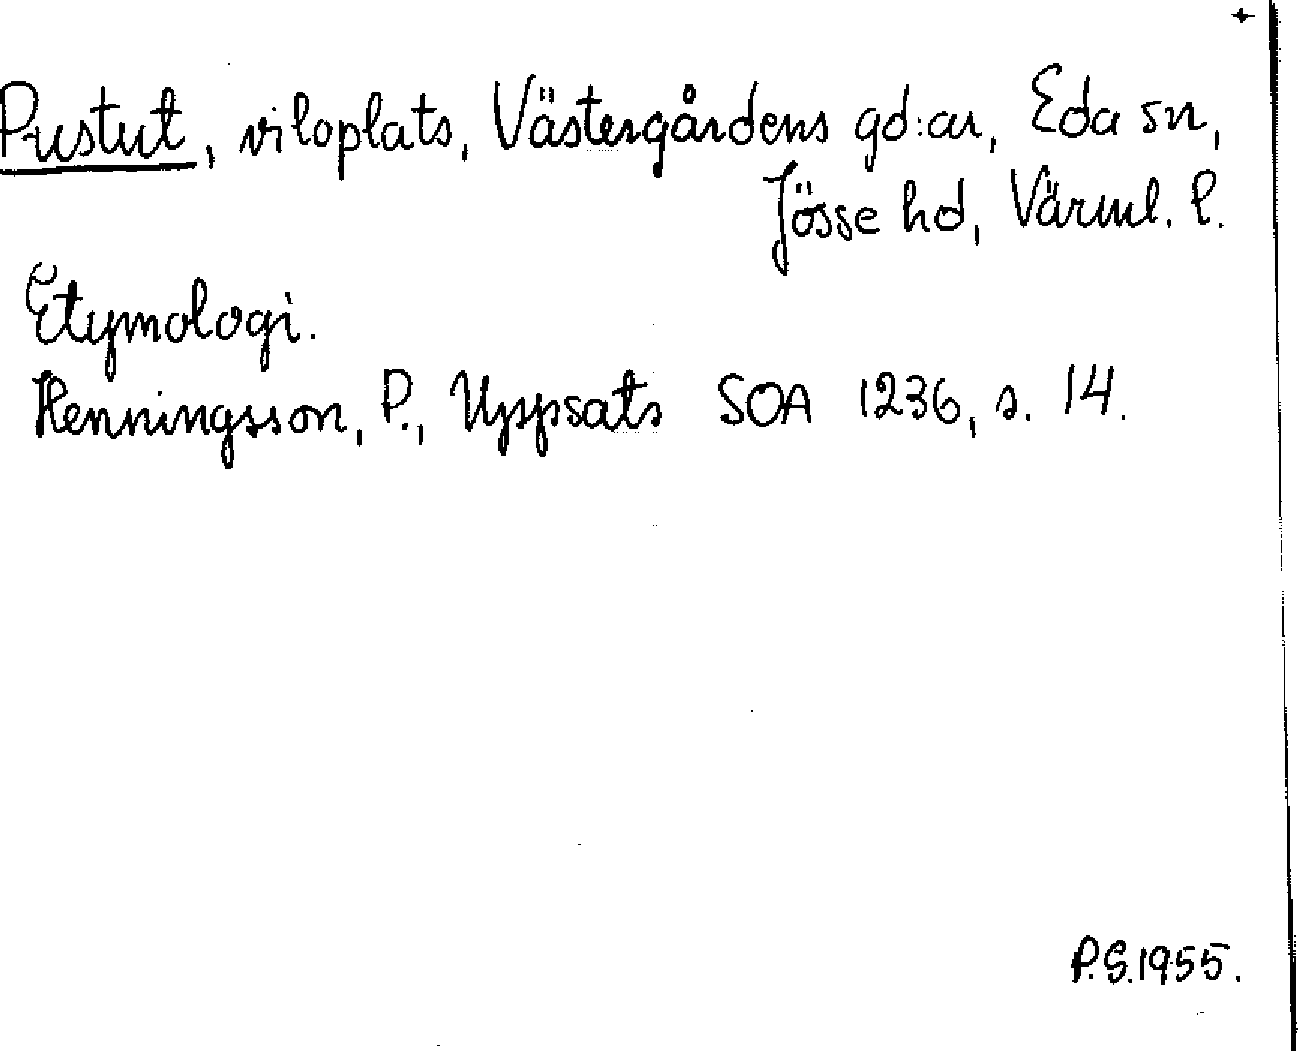 Pustut, viloplats, Västergårdens gd:ar, Eda sn,
Jösse hd, Värml. l.
Etymologi.
Henningsson, P., Uppsats SOA 1236, s. 14.
P.S.1955.